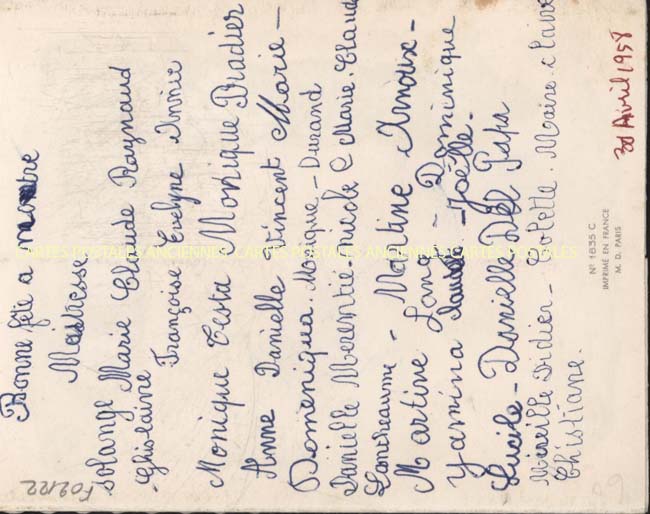 Bonne fête a notre
Maitresse
Solange Marie Claude Raynaud
Ghislaine
Françoise Evelyne
Monique Testa Monique Pradier
Anne Danielle Vincent Marie-
Domeniqua. Monique - Durand
Danielle Nicole C Marie. Claude
Martine Arnoux -
Martine Long - Dominique
Yamina Danielle - Joëlle -
Lucile - Danielle Del Papa
Mireille Didier - Colette. Marie. claire
Christiane.
Avril 1958
N° 1835 C
IMPRIMÉ EN FRANCE
M. D. PARIS
F02122
CARTES POSTALES ANCIENNES CARTES POSTALES ANCIENNES CARTES POSTALES